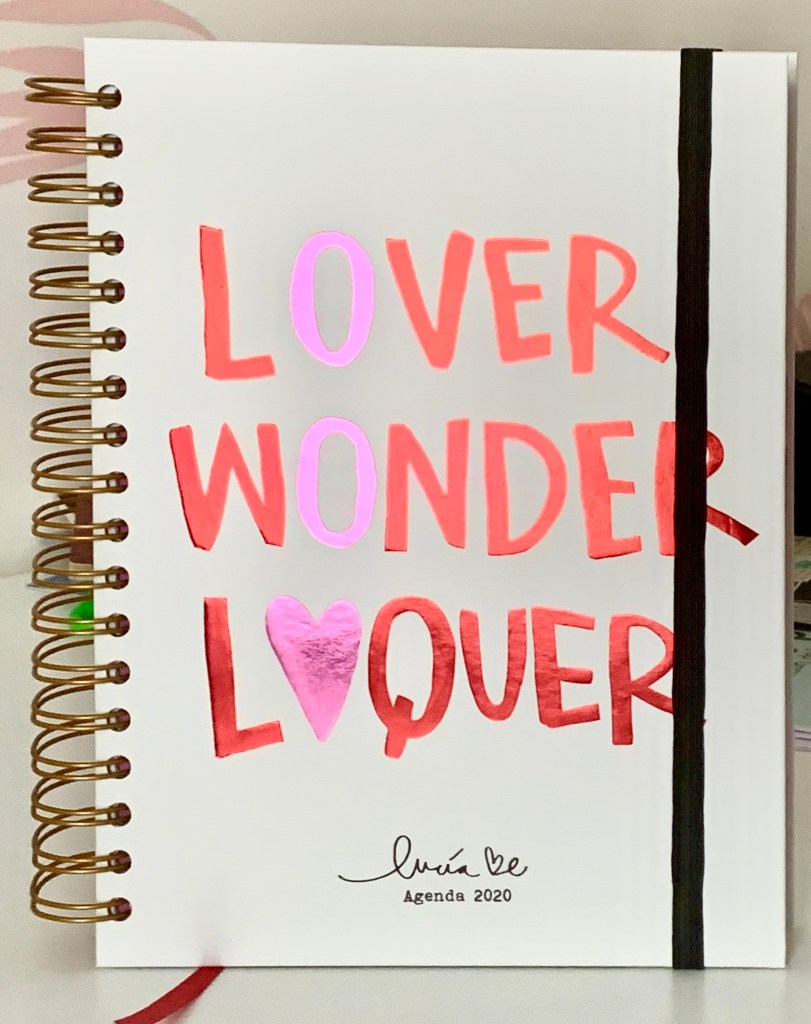 LOVER
WONDER
L♥QUER
lucía ♥e
Agenda 2020